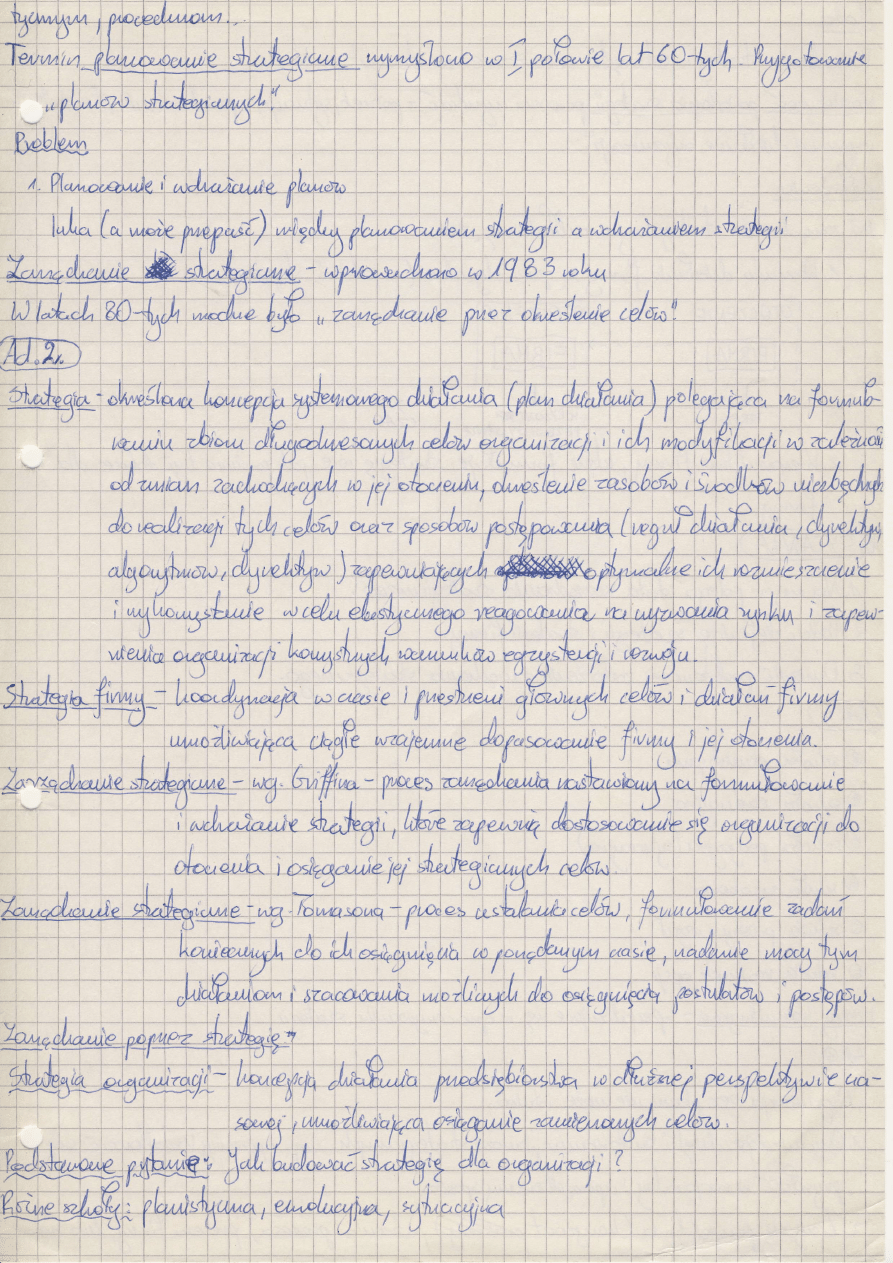 tycznym, procedurom...
Termin planowanie strategiczne wymyślono w I połowie lat 60-tych. Przygotowanie
„planów strategicznych".
Problem
1. Planowanie i wdrażanie planów
luka (a może przepaść) między planowaniem strategii a wdrażaniem strategii
Zarządzanie strategiczne - wprowadzono w 1983 roku
W latach 80-tych modne było „zarządzanie przez określenie celów".
Ad. 2.
Strategia - określona koncepcja systemowego działania (plan działania) polegająca na formuło-
waniu zbioru długookresowych celów organizacji i ich modyfikacji w zależności
od zmian zachodzących w jej otoczeniu, określenie zasobów i środków niezbędnych
do realizacji tych celów oraz sposobów postępowania (reguł działania, dyrektyw,
algorytmów, dyrektyw) zapewniających optymalne ich rozmieszczenie
i wykorzystanie w celu elastycznego reagowania na wyzwania rynku i zapew-
nienia organizacji korzystnych warunków egzystencji i rozwoju.
Strategia firmy - koordynacja w czasie i przestrzeni głównych celów i działań firmy
umożliwiająca ciągłe wzajemne dopasowanie firmy i jej otoczenia.
Zarządzanie strategiczne - wg. Griffina - proces zarządzania nastawiony na formułowanie
i wdrażanie strategii, które zapewnią dostosowanie się organizacji do
otoczenia i osiąganie jej strategicznych celów.
Zarządzanie strategiczne - wg. Tomasona - proces ustalania celów, formułowanie zadań
koniecznych do ich osiągnięcia w porządanym czasie, nadanie mocy tym
działaniom i szacowania możliwych do osiągnięcia postulatów i postępów.
Zarządzanie poprzez strategię"
Strategia organizacji - koncepcja działania przedsiębiorstwa w dłuższej perspektywie cza-
sowej, umożliwiająca osiąganie zamierzonych celów.
Podstawowe pytanie: Jak budować strategię dla organizacji?
Różne szkoły: planistyczna, ewolucyjna, sytuacyjna